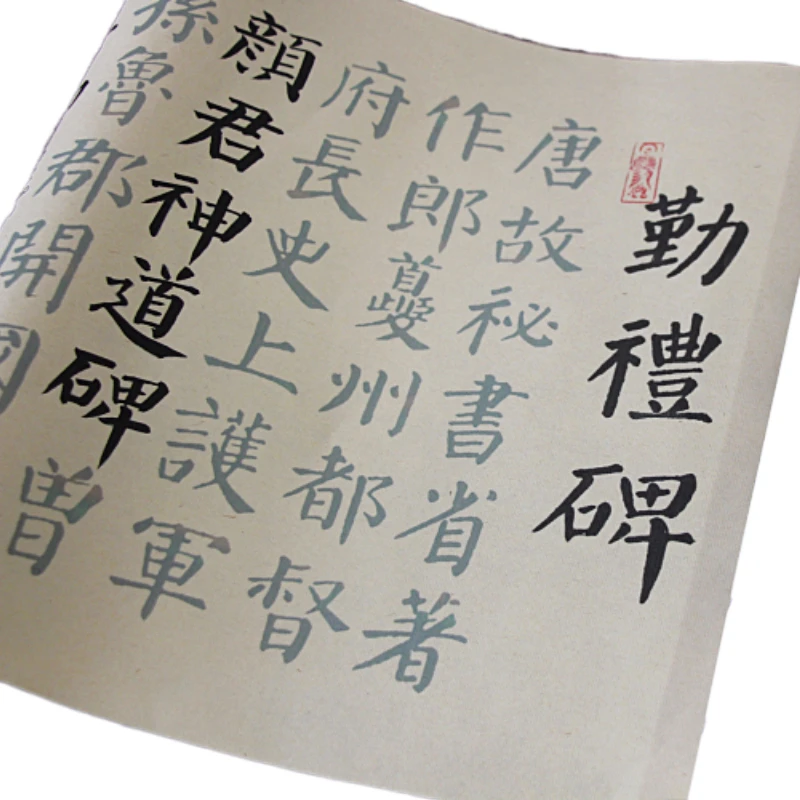 勤禮碑
唐故祕書省著
作郎夔州都督
府長史上護軍
顏君神道碑
曾
孫魯郡開國